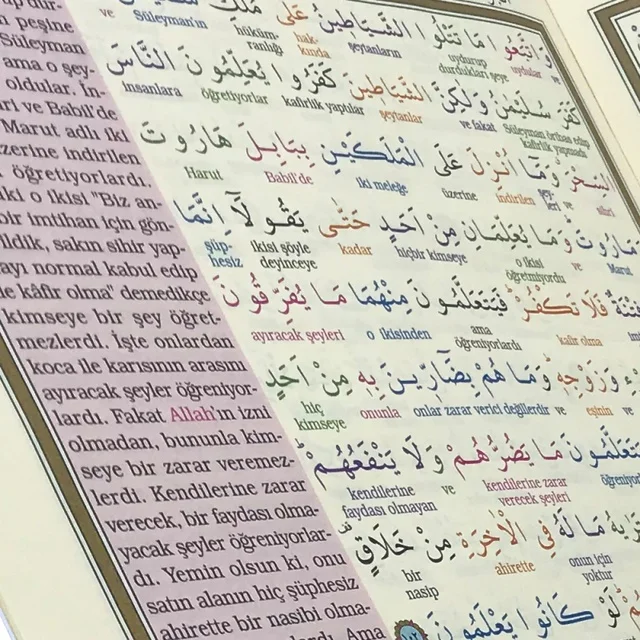 peşine
Süleyman
ama o şey-
oldular. İn-
ri ve Babil'de
Marut adlı iki
zerine indirilen
öğretiyorlardı.
ki o ikisi "Biz an-
bir imtihan için gön-
ildik, sakın sihir yap-
ayı normal kabul edip
le kâfir olma" demedikçe
kimseye bir şey öğret-
mezlerdi. İşte onlardan
koca ile karısının arasını
ayıracak şeyler öğreniyor-
lardı. Fakat Allah'ın izni
olmadan, bununla kim-
seye bir zarar veremez-
lerdi. Kendilerine zarar
verecek, bir faydası olma-
yacak şeyler öğreniyorlar-
dı. Yemin olsun ki, onu
satın alanın hiç şüphesiz
ahirette bir nasibi olma-
وَاتَّبَعُوا مَا تَتْلُوا الشَّيَاطِينُ عَلَى مُلْكِ
ve uydular uydurup durdukları şeye şeytanların hak- kında hüküm- ranlığı Süleyman'ın ve
كَفَرَ سُلَيْمٰنُ وَلٰكِنَّ الشَّيَاطِينَ كَفَرُوا يُعَلِّمُونَ النَّاسَ
Süleyman örtbas edip kafirlik yapmadı ve fakat şeytanlar kafirlik yaptılar öğretiyorlar insanlara
السِّحْرَ وَمَا اُنْزِلَ عَلَى الْمَلَكَيْنِ بِبَابِلَ هَارُوتَ
sihri ve şey- leri indirilen üzerine iki meleğe Babil'de Harut
مَارُوتَ وَمَا يُعَلِّمَانِ مِنْ اَحَدٍ حَتّٰى يَقُولَٓا اِنَّمَا
Marut ve o ikisi öğretmiyordu hiçbir kimseye kadar ikisi şöyle deyinceye şüp- hesiz
فِتْنَةٌ فَلَا تَكْفُرْ فَيَتَعَلَّمُونَ مِنْهُمَا مَا يُفَرِّقُونَ
kafir olma ama öğreniyorlardı o ikisinden ayıracak şeyleri
وَزَوْجِهِ وَمَا هُمْ بِضَارِّينَ بِهِ مِنْ اَحَدٍ
ve eşinin ve onlar zarar verici değillerdir onunla hiç kimseye
مَا يَضُرُّهُمْ وَلَا يَنْفَعُهُمْ
kendilerine zarar verecek şeyleri ve kendilerine faydası olmayan
مَا لَهُ فِي الْاٰخِرَةِ مِنْ خَلَاقٍ
onun için yoktur ahirette bir nasip
لَوْ كَانُوا يَعْلَمُونَ